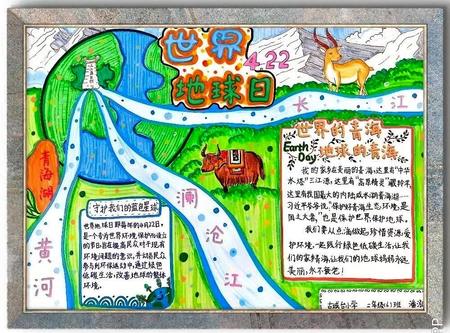 世界
4.22
地球日
长江
青海湖
黄河
澜沧江
世界的青海
Earth Day
地球的青海
我的家乡在美丽的青海,这里有“中华
水塔”三江源,这里有“高原精灵”藏羚羊,
这里有我国最大的内陆咸水湖青海湖。
习近平爷爷说,“保护好青海生态环境,是
国之大者”,也是保护世界,保护地球。
我们要从点滴做起,珍惜资源,爱
护环境,一起践行绿色低碳生活,让我
们的家乡青海,让我们的地球妈妈永远
美丽,永不衰老!
守护我们的蓝色星球
世界地球日即每年的4月22日,
是一个专为世界环境保护而设立
的节日旨在提高民众对于现有
环境问题的意识,并动员民众
参与到环保运动中,通过绿色
低碳生活,改善地球的整体
环境。
古城台小学 二年级(6)班 潘